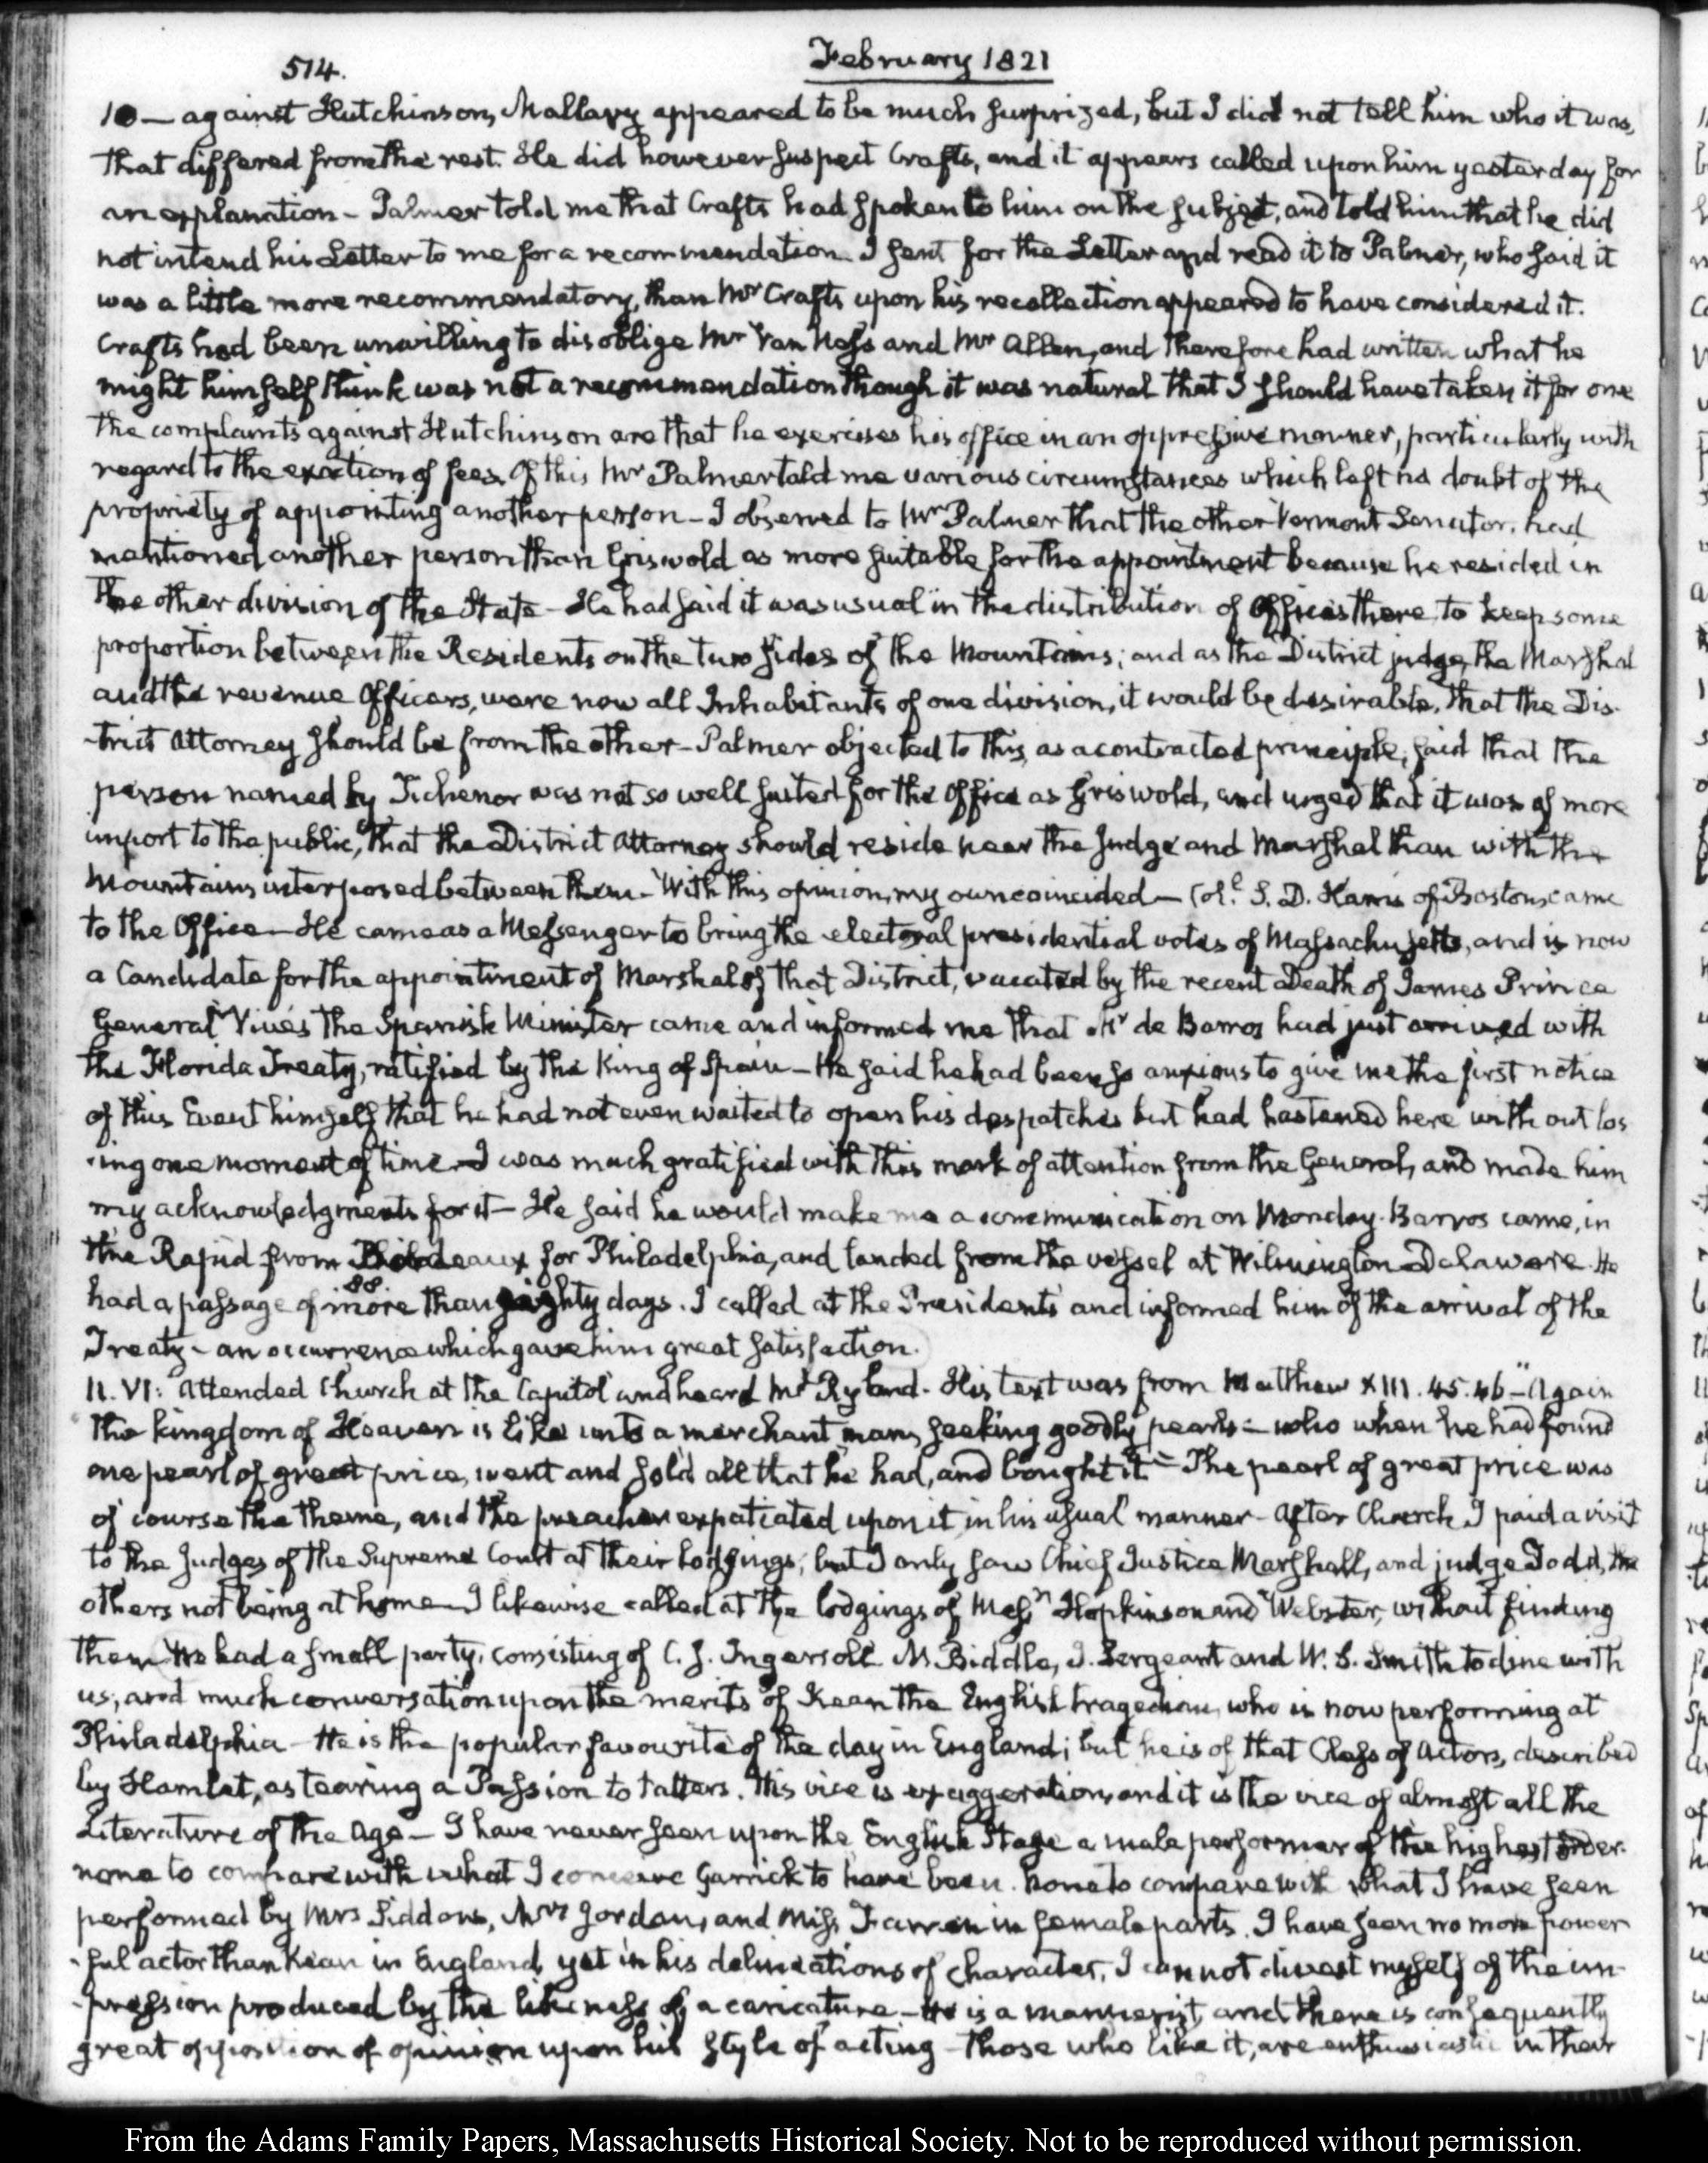 514.
February 1821
10 — against Hutchinson, Mallary appeared to be much surprized, but I did not tell him who it was,
that differed from the rest. He did however suspect Crafts, and it appears called upon him yesterday for
an explanation - Palmer told me that Crafts had spoken to him on the subject, and told him that he did
not intend his Letter to me for a recommendation. I sent for the Letter and read it to Palmer, who said it
was a little more recommendatory, than Mr Crafts upon his recollection appeared to have considered it.
Crafts had been unwilling to disoblige Mr Van Ness and Mr Allen, and therefore had written what he
might himself think was not a recommendation though it was natural that I should have taken it for one
the complaints against Hutchinson are that he exercises his office in an oppressive manner, particularly with
regard to the exaction of fees. Of this Mr Palmer told me various circumstances which left no doubt of the
propriety of appointing another person - I observed to Mr Palmer that the other Vermont Senator, had
mentioned another person than Griswold as more suitable for the appointment because he resided in
the other division of the State - He had said it was usual in the distribution of Offices there to keep some
proportion between the Residents on the two sides of the Mountains; and as the District judge, the Marshal
and the revenue Officers, were now all Inhabitants of one division, it would be desirable, that the Dis-
-trict Attorney should be from the other - Palmer objected to this, as a contracted principle; said that the
person named by Tichenor was not so well suited for the Office as Griswold, and urged that it was of more
import to the public, that the District Attorney should reside near the Judge and Marshal than with the
Mountains interposed between them - With this opinion, my own coincided — Col.l S. D. Harris of Boston, came
to the Office — He came as a Messenger to bring the electoral presidential votes of Massachusetts, and is now
a Candidate for the appointment of Marshal of that District, vacated by the recent Death of James Prince
General Vives the Spanish Minister came and informed me that Mr de Barros had just arrived with
the Florida Treaty, ratified by the King of Spain — He said he had been so anxious to give me the first notice
of this Event himself that he had not even waited to open his despatches but had hastened here without los
-ing one moment of time — I was much gratified with this mark of attention from the General, and made him
my acknowledgments for it — He said he would make me a communication on Monday. Barros came, in
the Rapid from Bordeaux for Philadelphia, and landed from the vessel at Wilmington Delaware. He
88.
had a passage of more than eighty days. I called at the Presidents and informed him of the arrival of the
Treaty - an occurrence which gave him great satisfaction.
11. VI: Attended Church at the Capitol and heard Mr Ryland. His text was from Matthew XIII. 45. 46 — "Again
the kingdom of Heaven is like unto a merchant man, seeking goodly pearls: — who when he had found
one pearl of great price, went and sold all that he had, and bought it" — The pearl of great price was
of course the theme, and the preacher expatiated upon it, in his usual manner - After Church I paid a visit
to the Judges of the Supreme Court at their lodgings; but I only saw Chief Justice Marshall, and judge Todd, the
others not being at home — I likewise called at the lodgings of Messrs Hopkinson and Webster, without finding
them. We had a small party, consisting of C. J. Ingersoll Mr Biddle, J. Sergeant and W. S. Smith to dine with
us; and much conversation upon the merits of Kean the English tragedian, who is now performing at
Philadelphia — He is the popular favourite of the day in England; but he is of that Class of Actors, described
by Hamlet, as tearing a Passion to tatters. His vice is exaggeration, and it is the vice of almost all the
Literature of the Age — I have never seen upon the English Stage a male performer of the highest order.
none to compare with what I conceive Garrick to have been. none to compare with what I have seen
performed by Mrs Siddons, Mrs Jordan, and Miss Farren in female parts. I have seen no more power
-ful actor than Kean in England, yet in his delineations of character, I cannot divest myself of the im-
-pression produced by the likeness of a caricature — He is a mannerist, and there is consequently
great opposition of opinion upon his style of acting - those who like it, are enthusiastic in their
From the Adams Family Papers, Massachusetts Historical Society. Not to be reproduced without permission.